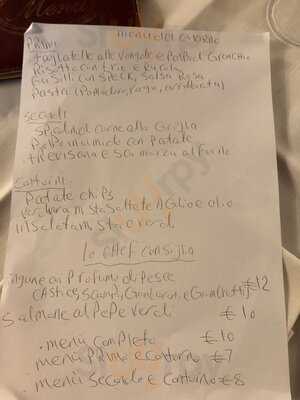 Menu
menù del Giorno
PRimi
tagliatelle alle Vongole e Polpa di Granchio
Risotto con Brie e Rucola
Fusilli con Speck, Salsa Rosa
Pasta (Pomodoro, ragù, arrabbiata)
SECONDI
Spiedini di carne alla Griglia
Polpo in umido con Patate
trevisana e Scamorza al forno
Contorni
Patate chips
verdura mista Saltata AGlio e olio
insalata mista verdi
lo chef consiglia
linguine ai Profumi di Pesce
(Astice, Scampi, Gamberoni, e Granchio) €12
Salmone al PePe verdi € 10
. menù completo € 10
. menù Primo e contorno €7
. menù Secondo e contorno €8